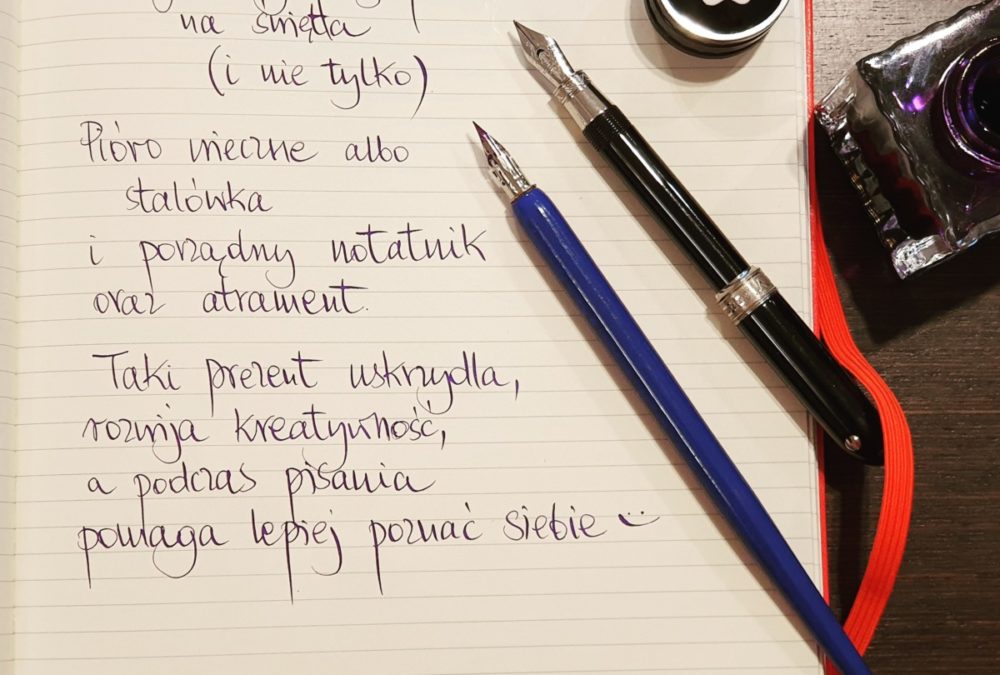 na święta
(i nie tylko)
Pióro wieczne albo
stalówka
i porządny notatnik
oraz atrament.
Taki prezent uskrzydla,
rozwija kreatywność,
a podczas pisania
pomaga lepiej poznać siebie